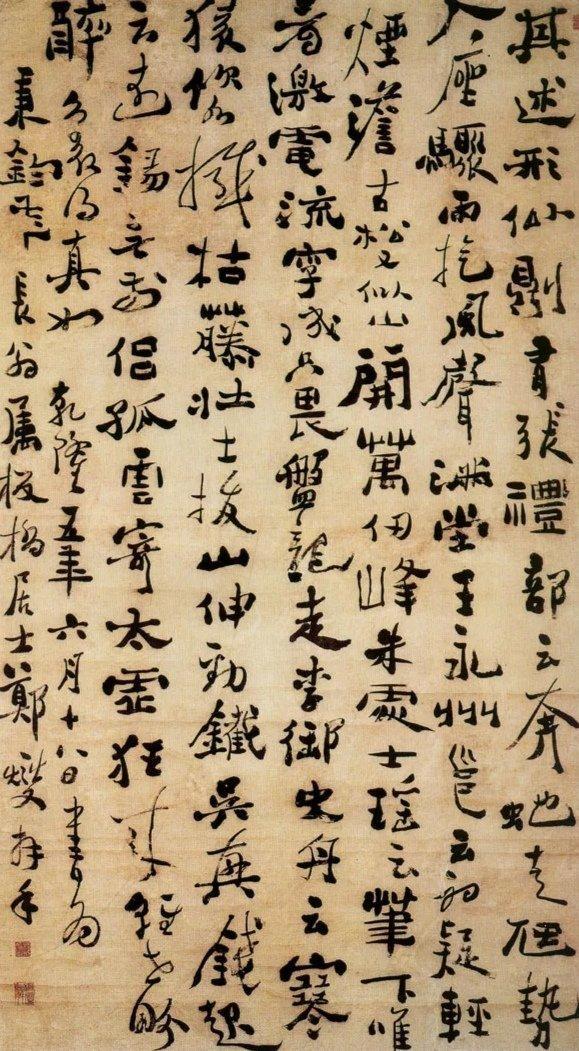 其述形似則有張禮部云奔虵走虺勢
入座驟雨旋風聲滿堂王永州邕云初疑輕
煙澹古松又似山開萬仞峰朱處士瑤云筆下唯
看激電流字成只畏盤龍走李御史舟云寒
猿飲水撼枯藤壯士拔山伸勁鐵吳興錢起
云遠錫無前侶孤雲寄太虛狂來輕世界
醉裏得真如 乾隆五年六月十八日書為
秉鈞長翁屬板橋居士鄭燮